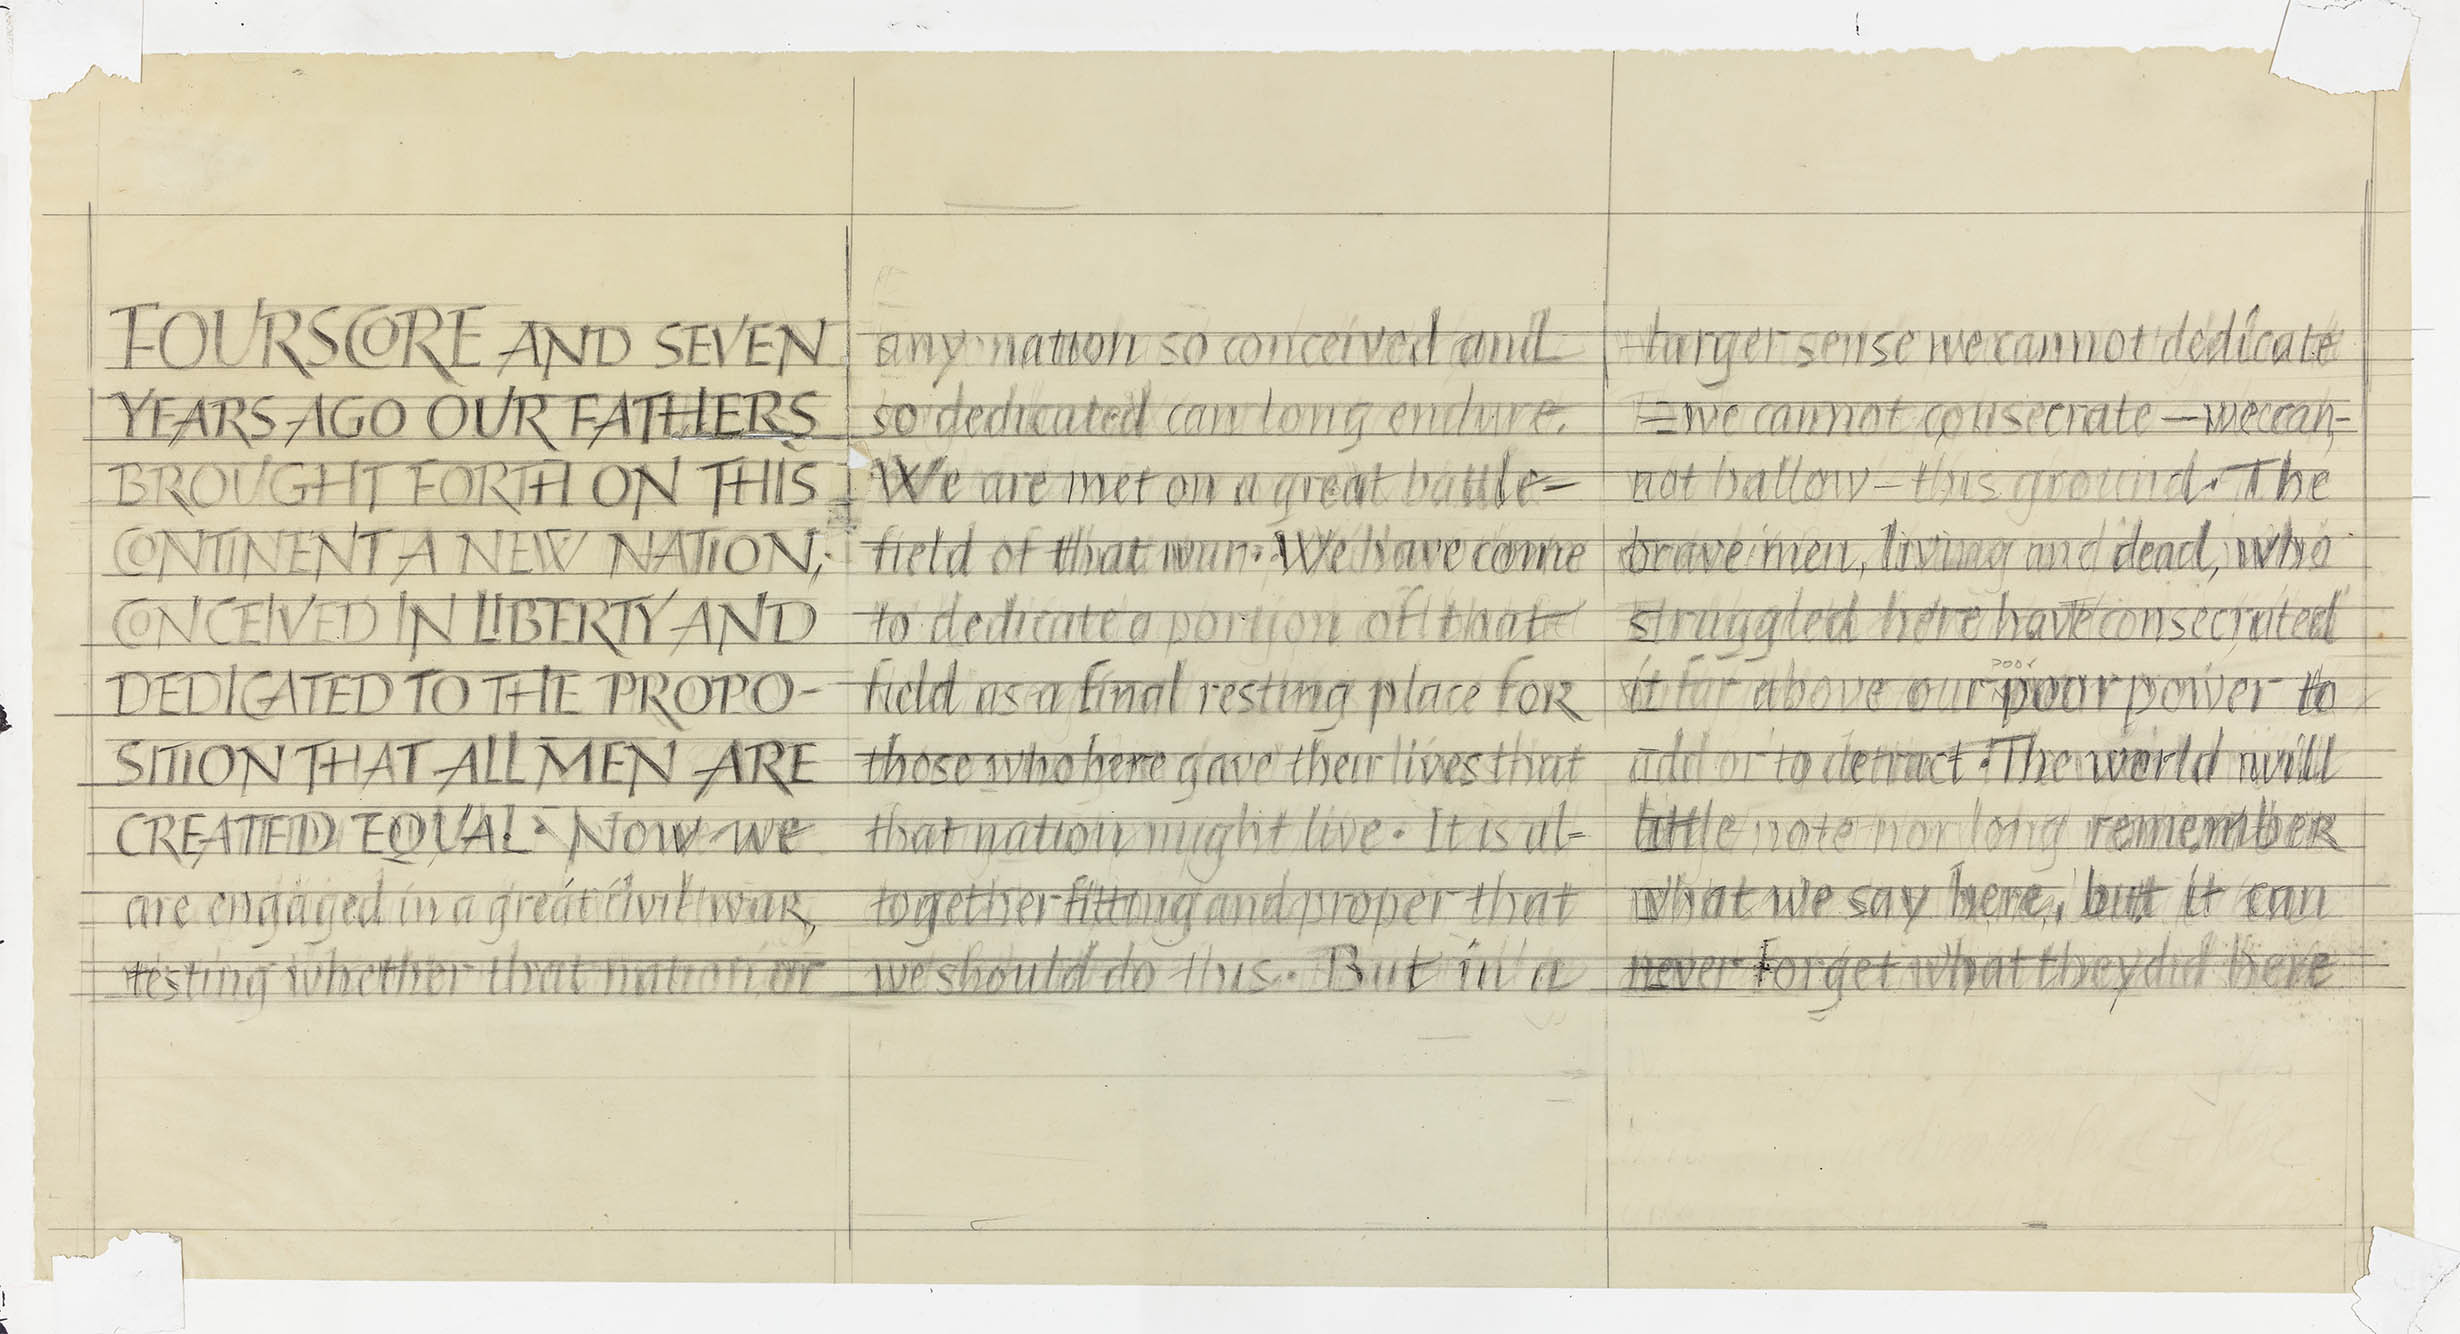 FOURSCORE AND SEVEN
YEARS AGO OUR FATHERS
BROUGHT FORTH ON THIS
CONTINENT A NEW NATION,
CONCEIVED IN LIBERTY AND
DEDICATED TO THE PROPO-
SITION THAT ALL MEN ARE
CREATED EQUAL · NOW WE
are engaged in a great civil war,
testing whether that nation, or
any nation so conceived and
so dedicated can long endure.
We are met on a great battle=
field of that war · We have come
to dedicate a portion of that
field as a final resting place for
those who here gave their lives that
that nation might live · It is al=
together fitting and proper that
we should do this · But in a
larger sense we cannot dedicate
— we cannot consecrate — we can-
not hallow — this ground · The
brave men, living and dead, who
struggled here have consecrated
poor
it far above our poor power to
add or to detract · The world will
little note nor long remember
what we say here, but it can
never forget what they did here